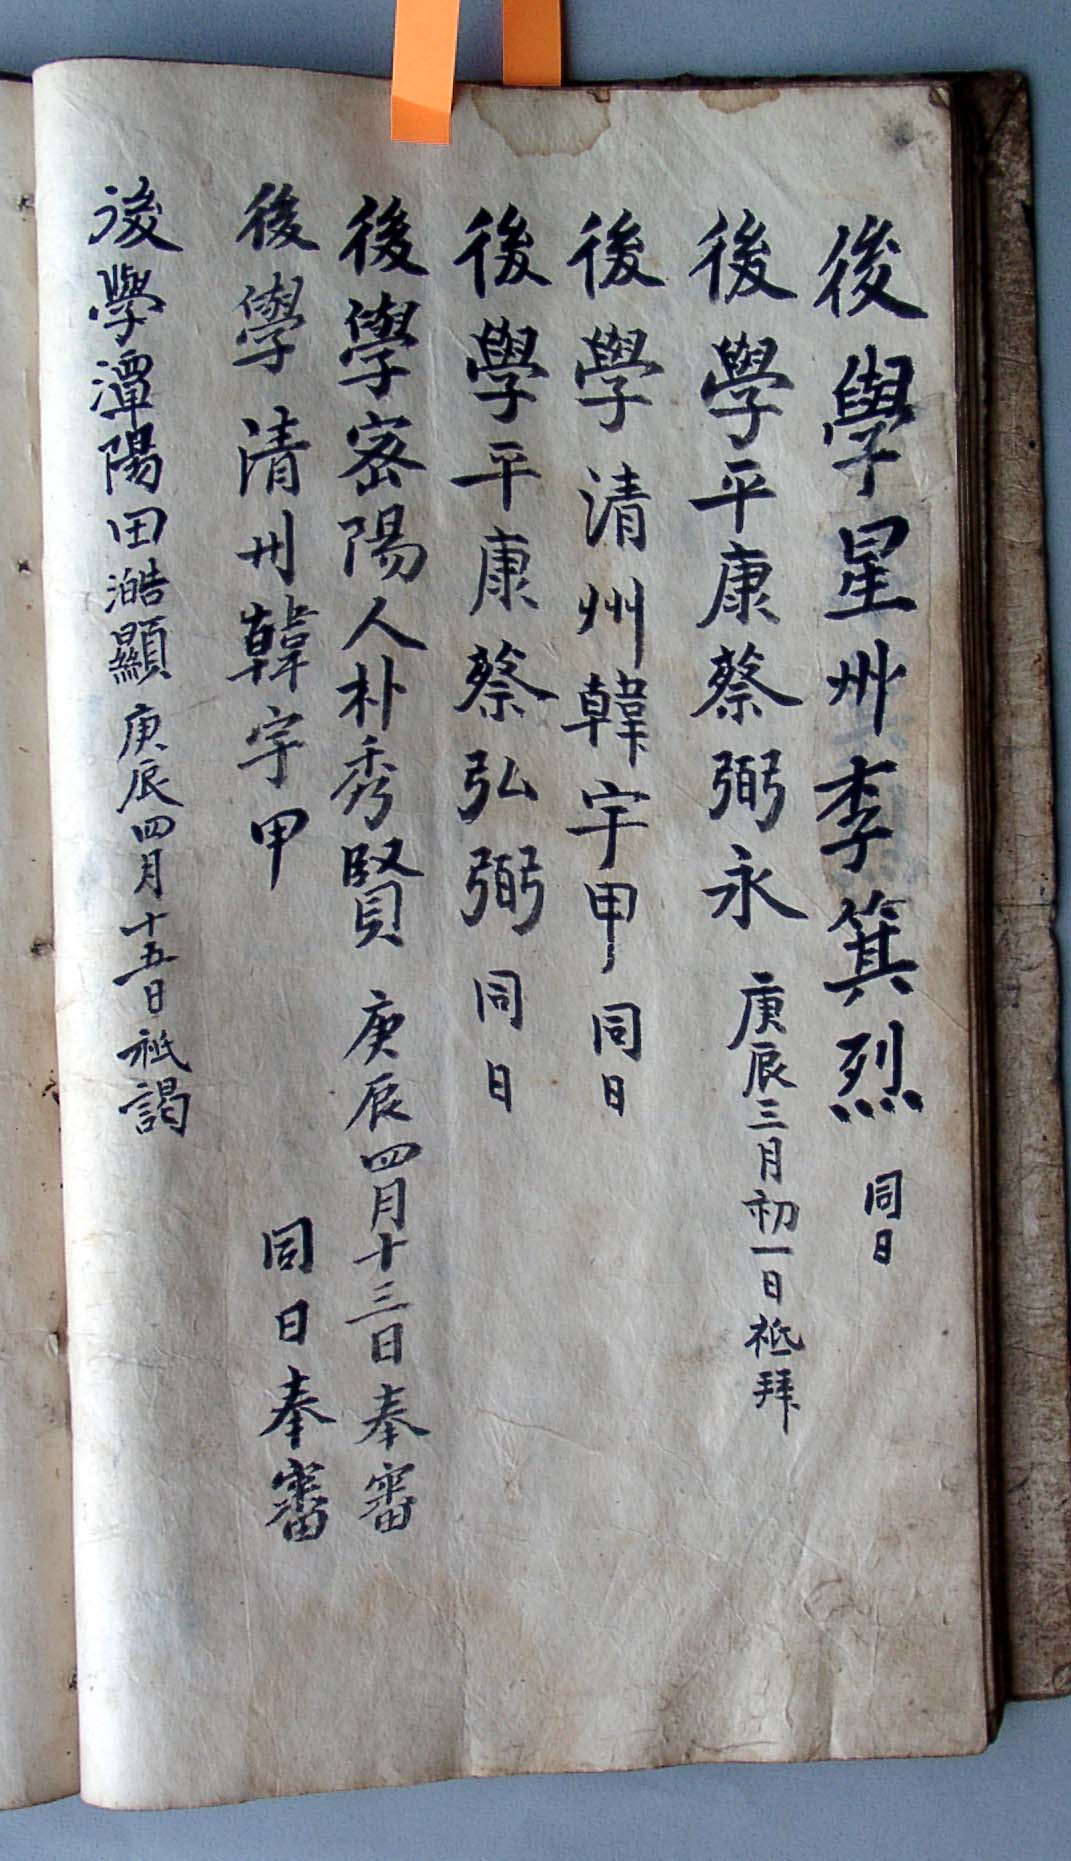 後學星州李箕烈 同日
後學平康蔡弼永 庚辰三月初一日祗拜
後學清州韓宇甲 同日
後學平康蔡弘弼 同日
後學密陽人朴秀賢 庚辰四月十三日奉審
後學清州韓宇甲 同日奉審
後學潭陽田澔顯 庚辰四月十五日祗謁